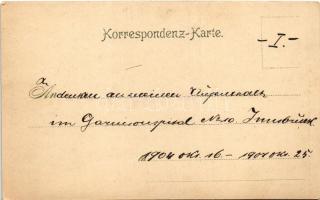 Korrespondenz-Karte.
-I.-
Andenken an meinen Aufenthalt
im Garnisonspital No 10 Innsbruck
1904 Okt. 16 - 1904 Okt. 25.